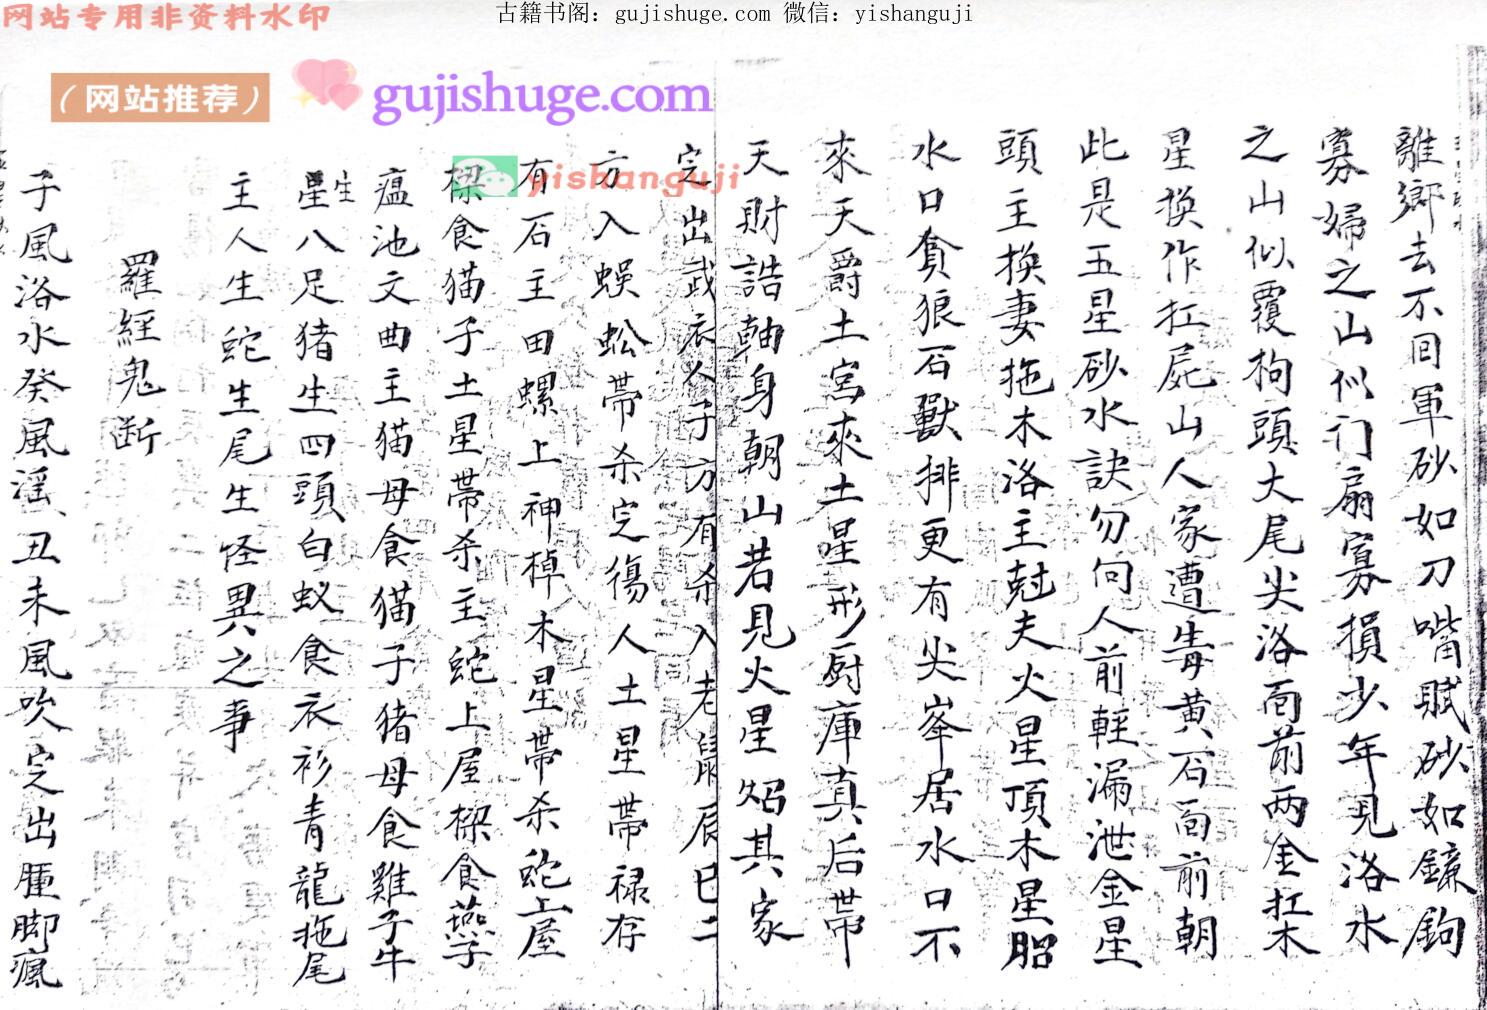 网站专用非资料水印
古籍书阁：gujishuge.com 微信：yishanguji
（网站推荐）
gujishuge.com
yishanguji
離鄉去不回軍砂如刀嘴賦砂如鐮鉤
寡婦之山似门扇寡損少年见洛水
之山似覆枸頭大尾尖洛面前两金扛木
星换作扛屍山人家遭毒黄石面前朝
此是五星砂水訣勿向人前輕漏泄金星
頭主换妻拖木洛主尅夫火星頂木星照
水口貪狼石獸排更有尖峯居水口不
來天爵土宮來土星形厨庫真后带
天財誥軸身朝山若見火星焰其家
定出武衣人子方有杀入老鼠辰巳二
方入蜈蚣帶杀定傷人土星帶禄存
有石主田螺上神棹木星帶杀蛇上屋
樑食猫子土星帶杀主蛇上屋樑食燕子
瘟池文曲主猫母食猫子猪母食雞子牛
生星八足猪生四頭白蚁食衣衫青龍拖尾
主人生蛇生尾生怪異之事
羅經鬼断
子風洛水癸風滛丑未風吹定出腫脚瘋